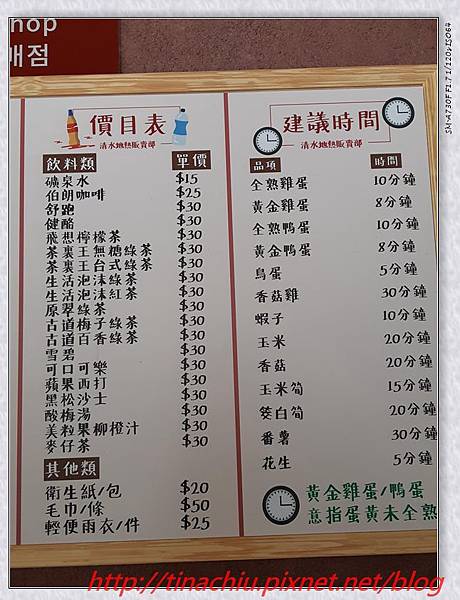 hop
매점
價目表
清水地熱販賣部
飲料類 單價
礦泉水 $15
伯朗咖啡 $25
舒跑 $30
健酪 $30
飛想檸檬茶 $30
茶裏王無糖綠茶 $30
茶裏王台式綠茶 $30
生活泡沫綠茶 $30
生活泡沫紅茶 $30
原翠綠茶 $30
古道梅子綠茶 $30
古道百香綠茶 $30
雪碧 $30
可口可樂 $30
蘋果西打 $30
黑松沙士 $30
酸梅湯 $30
美粒果柳橙汁 $30
麥仔茶 $30
其他類
衛生紙/包 $20
毛巾/條 $50
輕便雨衣/件 $25
建議時間
清水地熱販賣部
品項 時間
全熟雞蛋 10分鐘
黃金雞蛋 8分鐘
全熟鴨蛋 10分鐘
黃金鴨蛋 8分鐘
鳥蛋 5分鐘
香菇雞 30分鐘
蝦子 10分鐘
玉米 20分鐘
香菇 20分鐘
玉米筍 15分鐘
筊白筍 20分鐘
番薯 30分鐘
花生 5分鐘
黃金雞蛋/鴨蛋
意指蛋黃未全熟
SM-A730F F1.7 1/120s ISO64
http://tinachiu.pixnet.net/blog